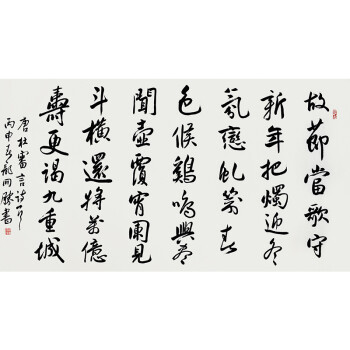 故節當歌守
新年把燭迎冬
氛戀虬箭春
色候鷄鳴興盡
聞壺覆宵闌見
斗橫還將萬億
壽更謁九重城
唐杜審言詩一首
丙申春 書